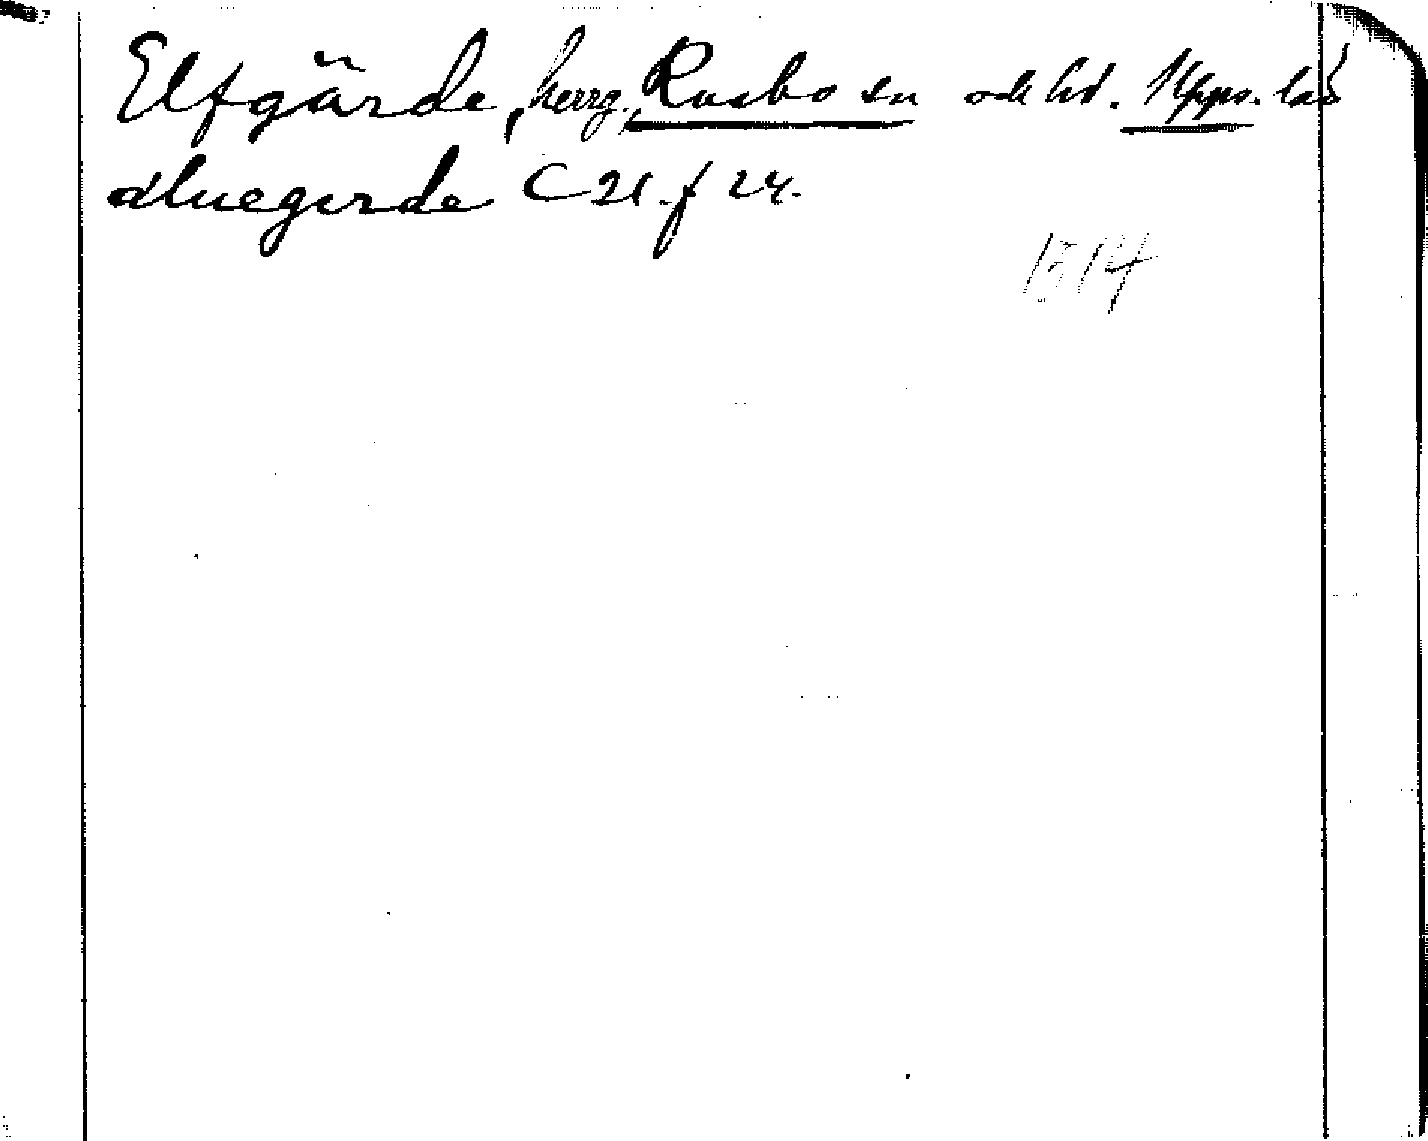 Elfgärde, herrg., Rasbo sn och hd. Upps. län
aluegerde C 21. f 24.
1314